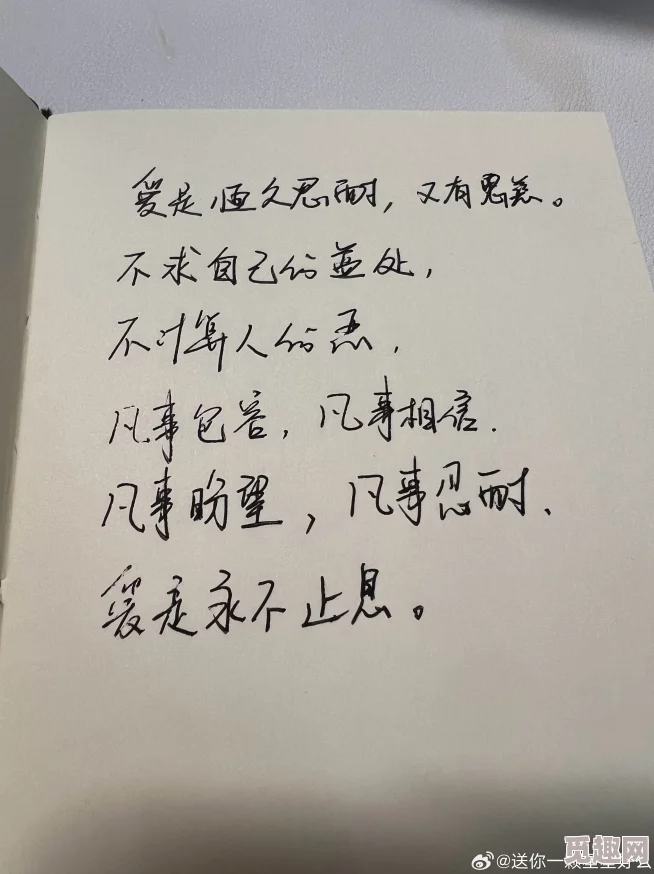 爱是恒久忍耐，又有恩慈。
不求自己的益处，
不计算人的恶，
凡事包容，凡事相信．
凡事盼望，凡事忍耐．
爱是永不止息。
觅趣网
@送你一颗